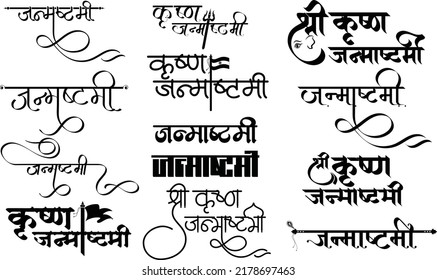 जन्माष्टमी
जन्माष्टमी
जन्माष्टमी
कृष्ण
जन्माष्टमी
कृष्ण
जन्माष्टमी
कृष्ण
जन्माष्टमी
जन्माष्टमी
जन्माष्टमी
श्री कृष्ण
जन्माष्टमी
श्री कृष्ण
जन्माष्टमी
जन्माष्टमी
श्री कृष्ण
जन्माष्टमी
जन्माष्टमी
shutterstock.com · 2178697463